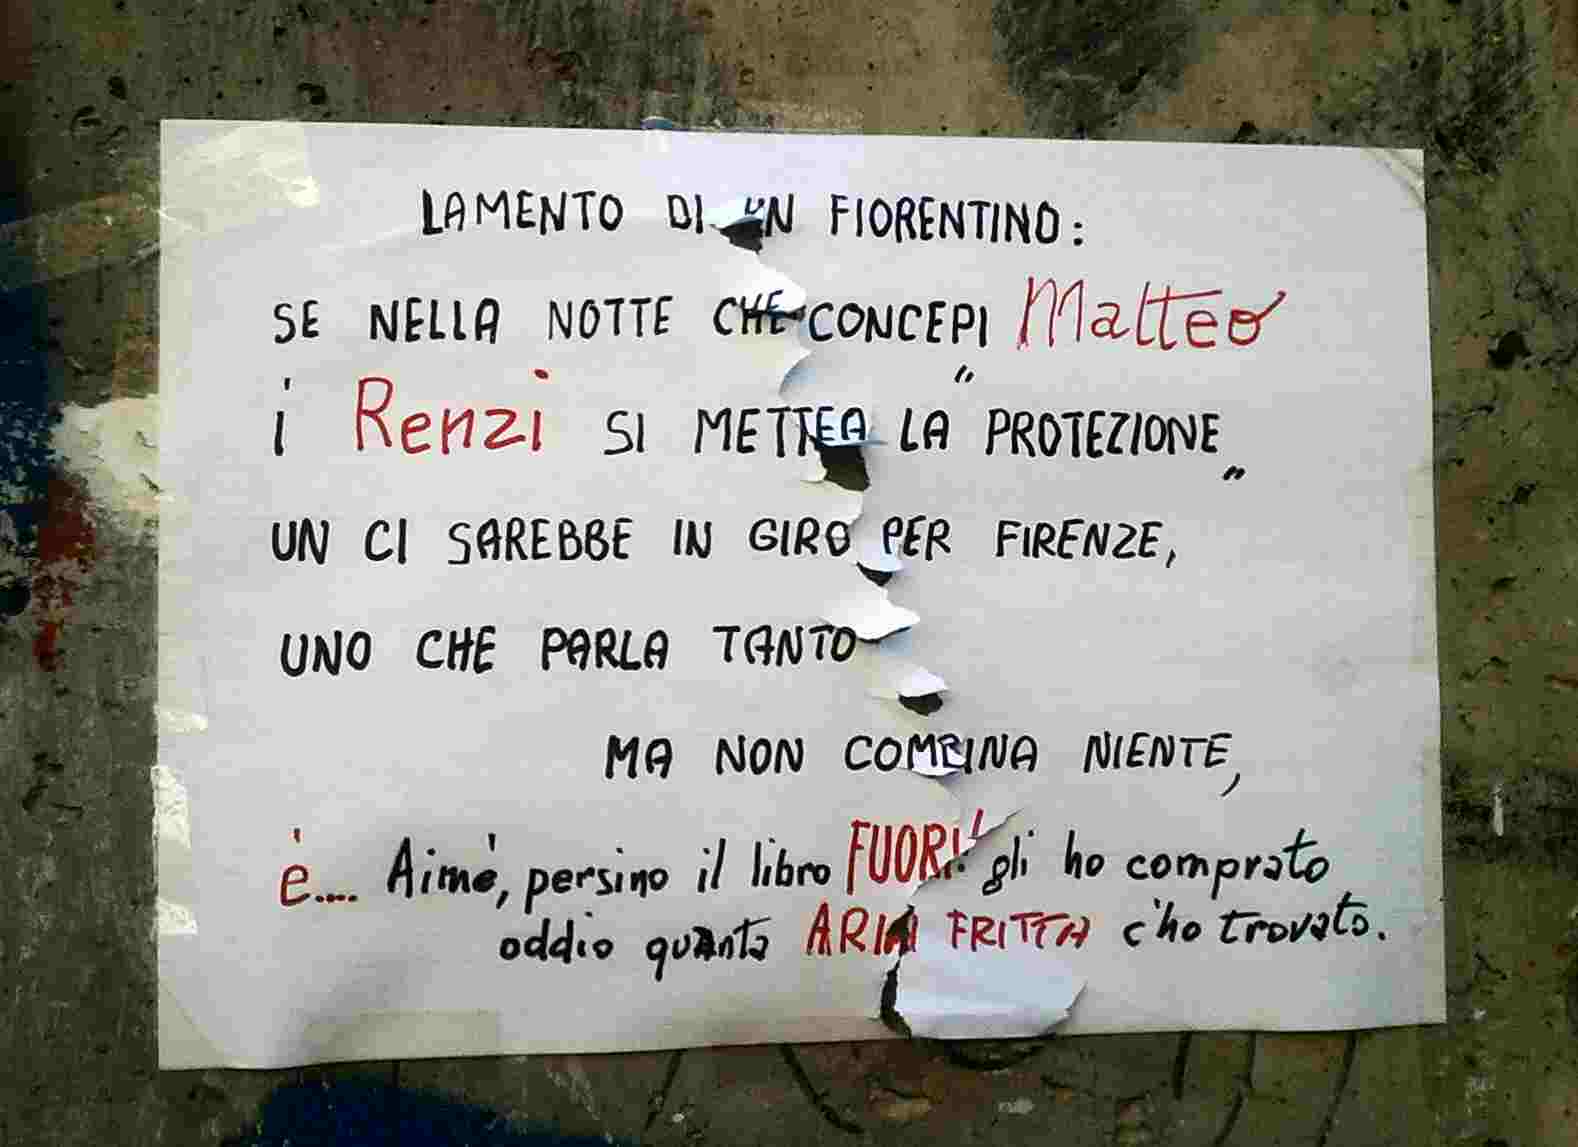 LAMENTO DI UN FIORENTINO:
SE NELLA NOTTE CHE CONCEPI Matteo
i Renzi SI METTEA LA "PROTEZIONE"
UN CI SAREBBE IN GIRO PER FIRENZE,
UNO CHE PARLA TANTO
MA NON COMBINA NIENTE,
è.... Aimè, persino il libro FUORI! gli ho comprato
oddio quanta ARIA FRITTA c'ho trovato.